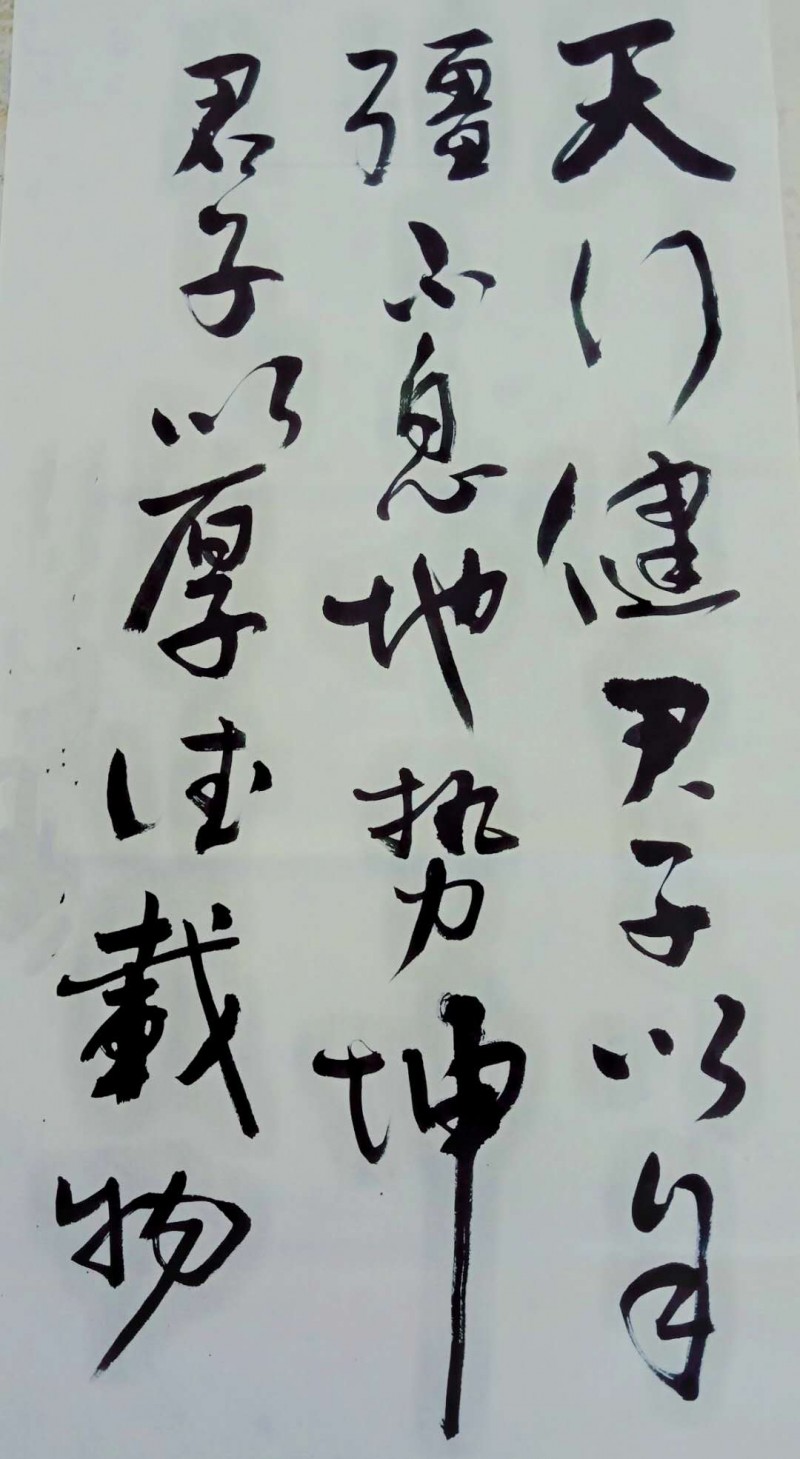 天行健君子以自
彊不息地势坤
君子以厚德载物